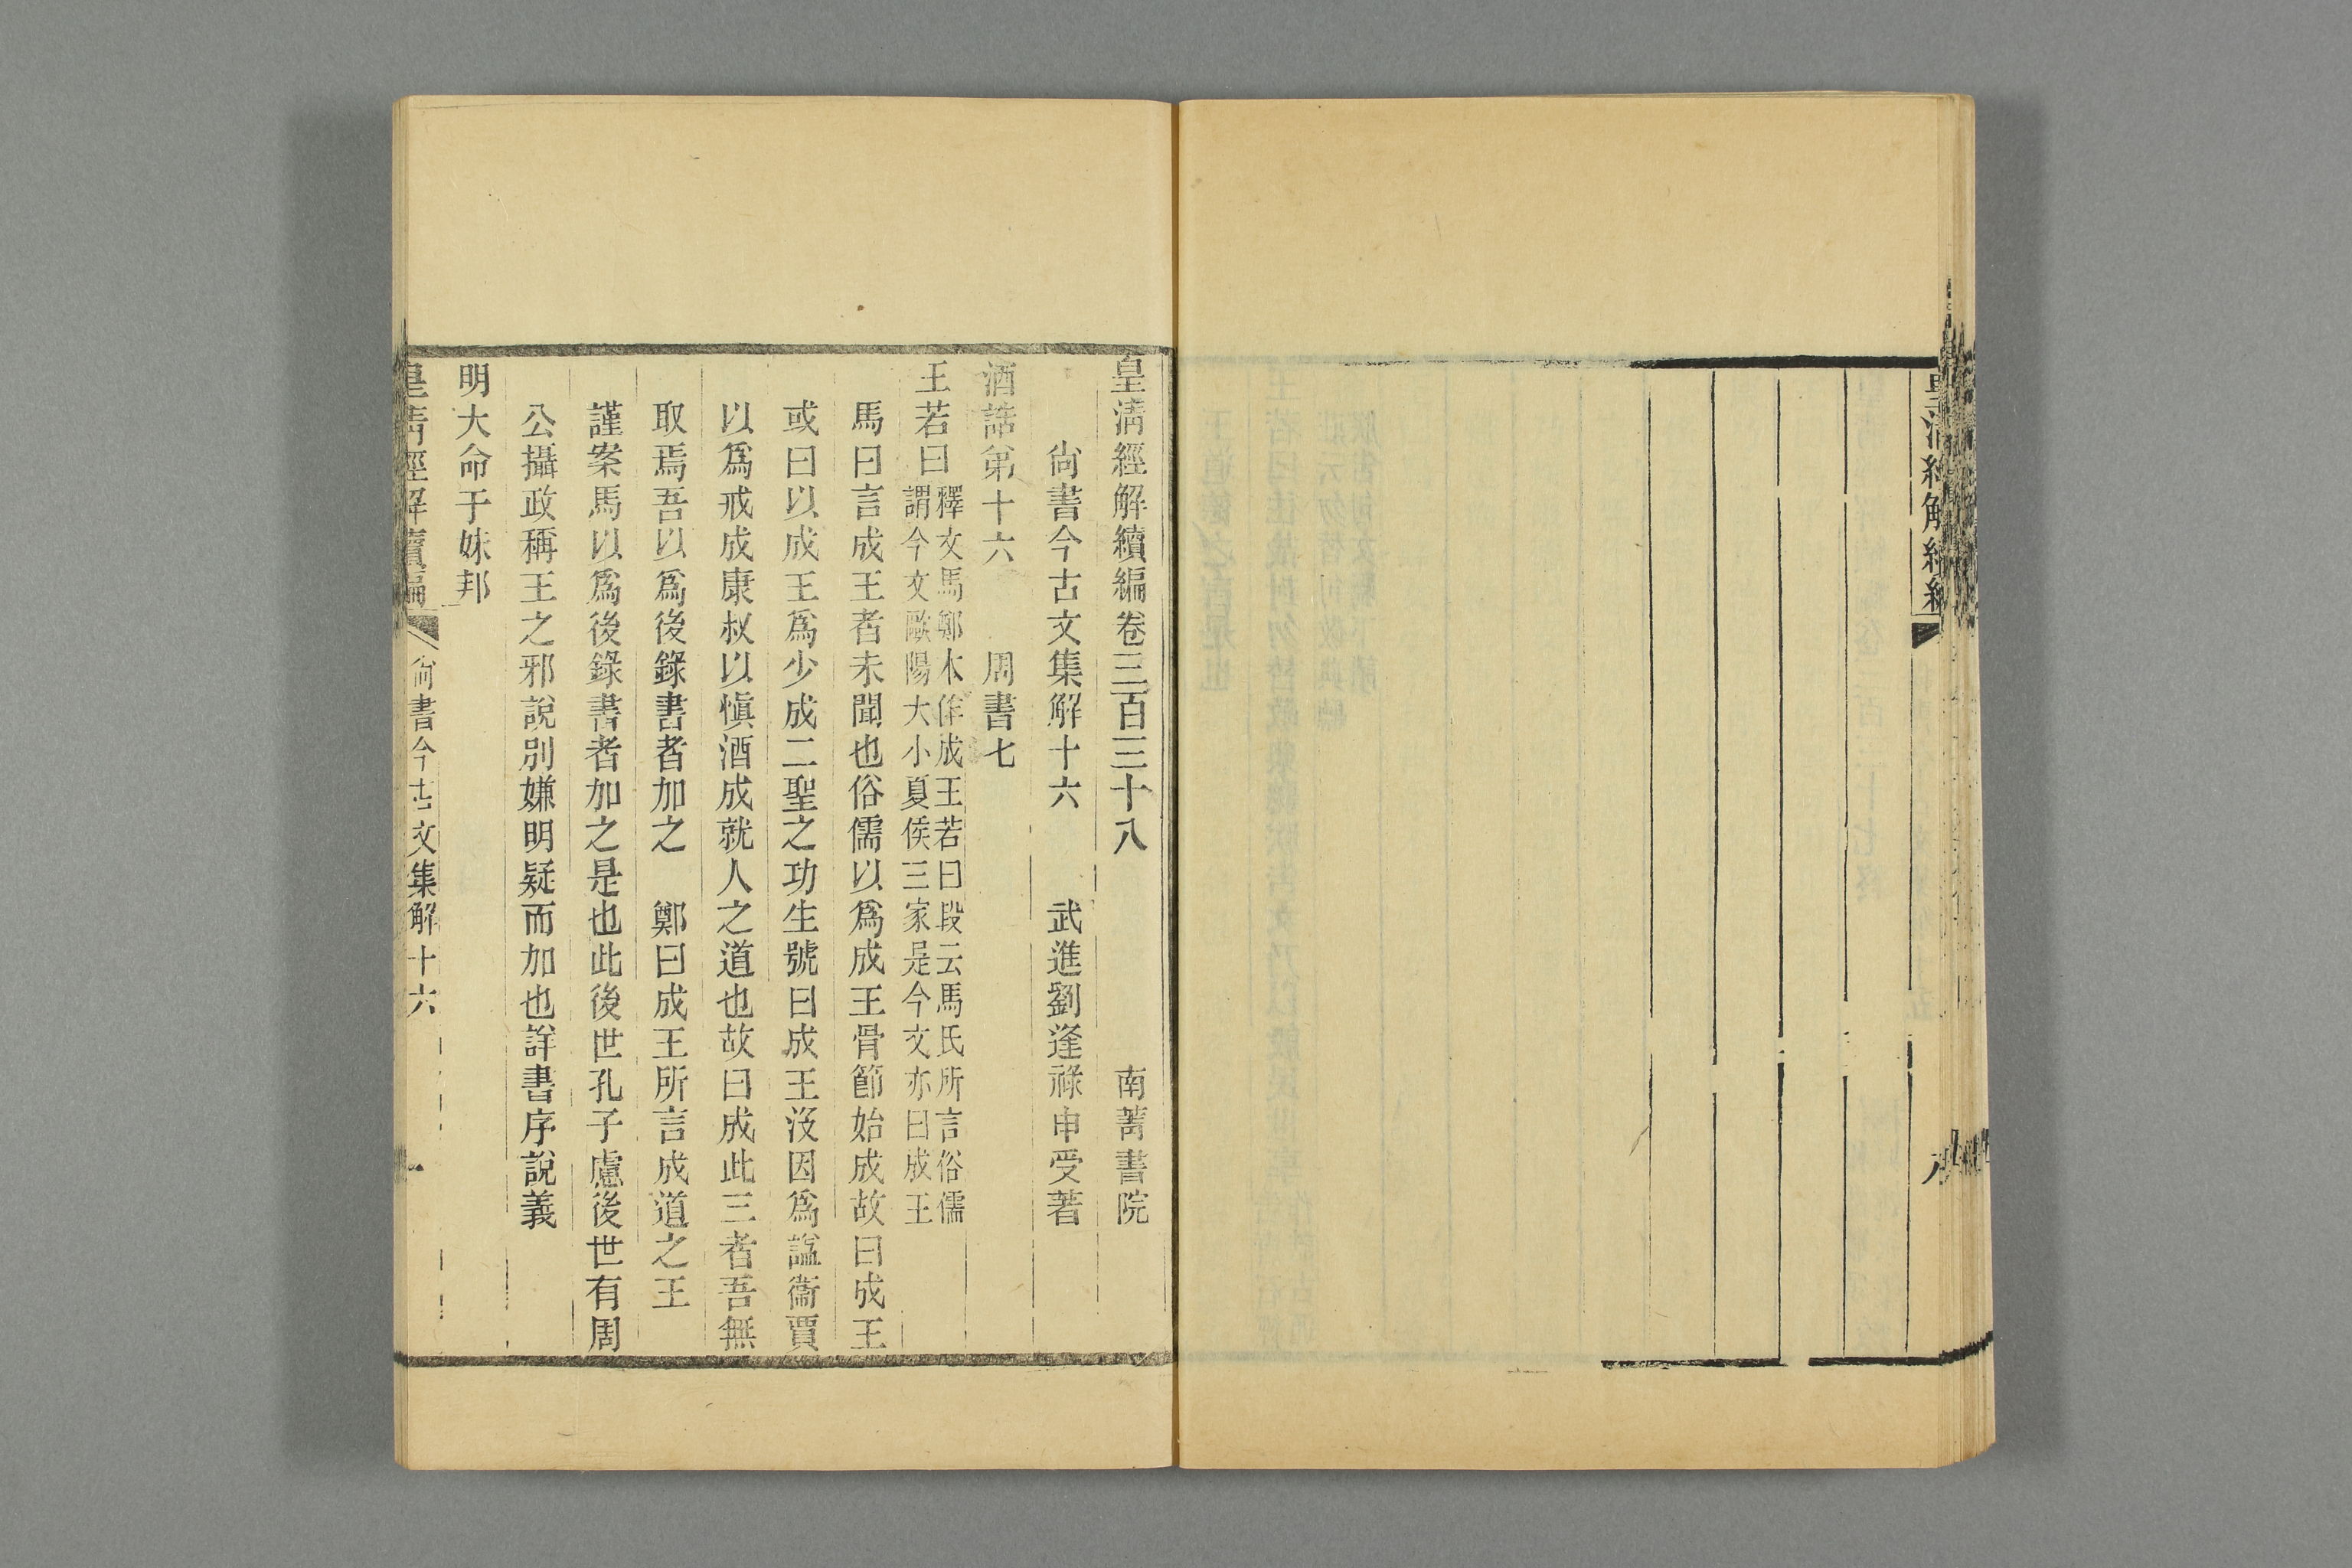 皇清經解續編卷三百三十八　南菁書院
尙書今古文集解十六　武進劉逢祿申受著
酒誥第十六　周書七
王若曰
釋文馬鄭本作成王若曰段云馬氏所言俗儒
謂今文歐陽大小夏侯三家是今文亦曰成王
馬曰言成王者未聞也俗儒以爲成王骨節始成故曰成王
或曰以成王爲少成二聖之功生號曰成王沒因爲諡衞賈
以爲戒成康叔以愼酒成就人之道也故曰成此三者吾無
取焉吾以爲後錄書者加之　鄭曰成王所言成道之王
謹案馬以爲後錄書者加之是也此後世孔子慮後世有周
公攝政稱王之邪說別嫌明疑而加也詳書序說義
明大命于妹邦
皇清經解續編　尙書今古文集解十六　一